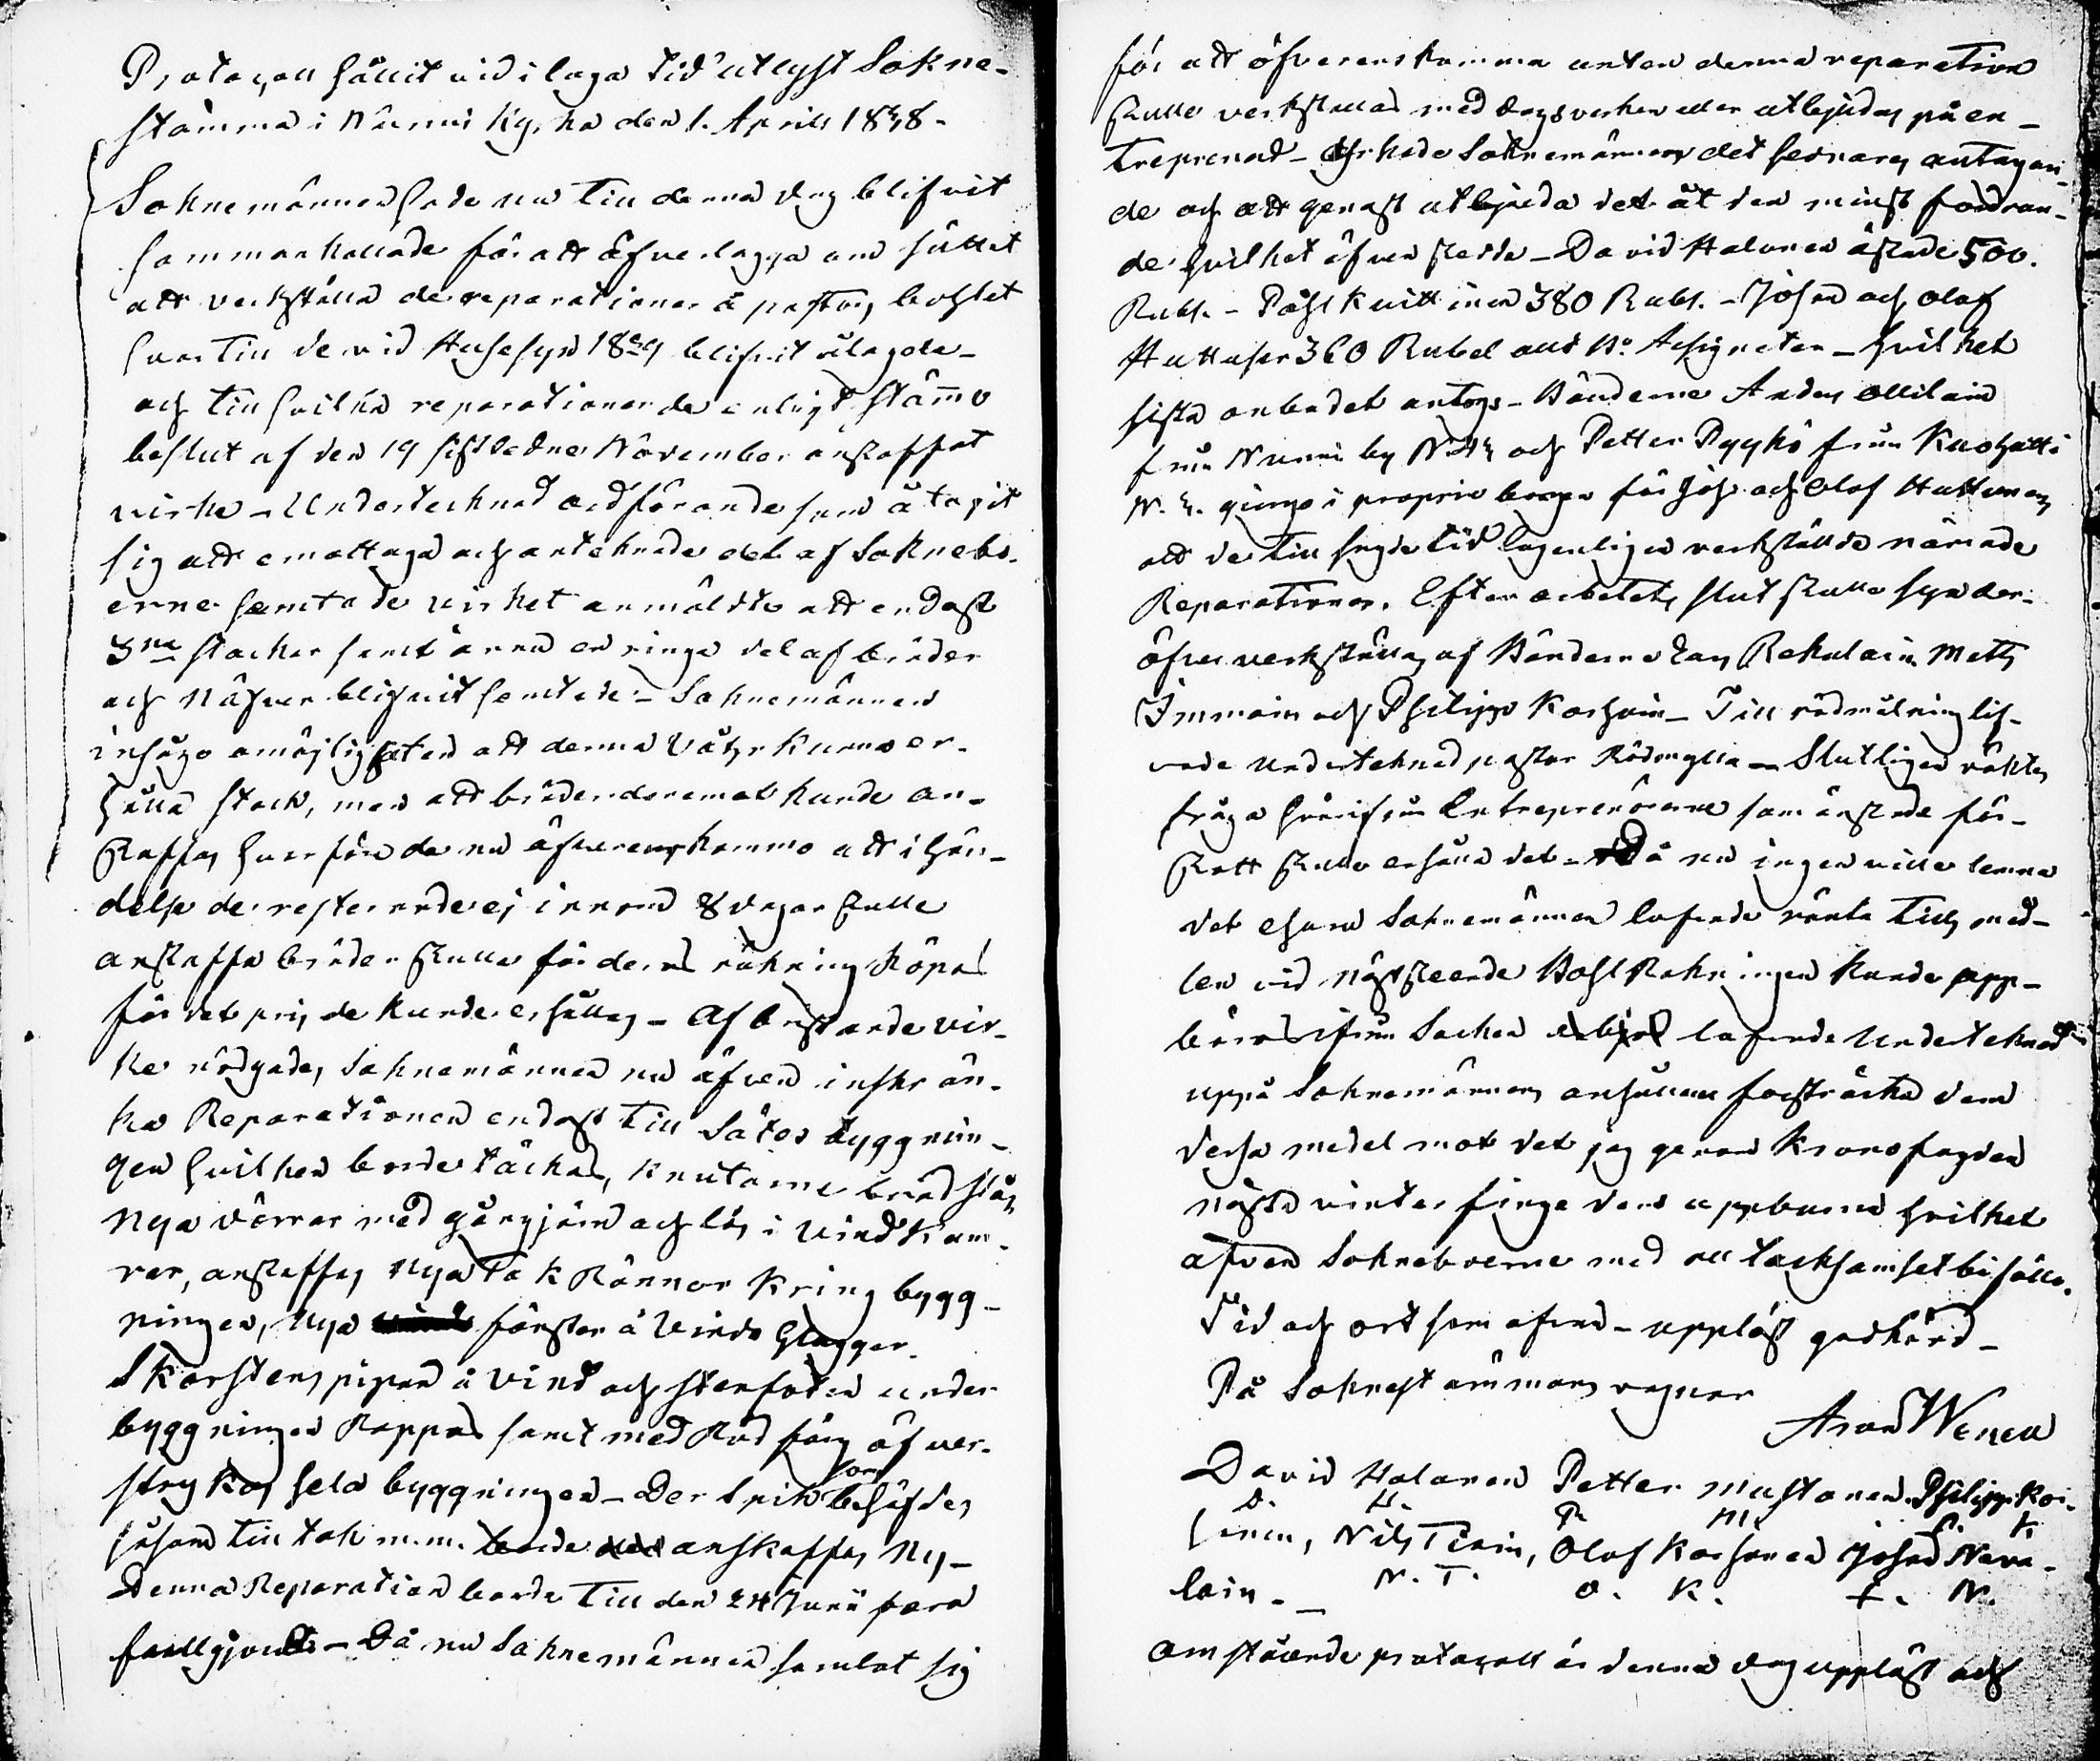 Protocoll hållit vid i laga tid utlyst Sokne-
stämma i Nurmis Kyrka den 1. Aprill 1838.
Soknemännen hade nu till denna dag blifvit
sammankallade för att öfverlägga om sättet
att verkställa de reparationer å pastors bohlet
hvartill de vid Husesyn 1829 blifvit ålagde
och till hvilka reparationer de enligt stämo
beslut af den 19 sistledne November anskaffat
virke – Undertecknad ordförande som åtagit
sig att emottaga och antekna det af Soknebo-
erne hämtade virket anmälte att endast
3ne stockar samt ännu en ringa del af bräder
och Näfver blifvit hämtade – Soknemännen
insågo omöjligheten att denna Våhr kunna er-
hålla stock, men att bräder deremot kunde an-
skaffas hvarföre de nu öfverenskommo att i hän-
delse de resterande ej innom 8 dagar skulle
anskaffa bräder skulle för deras räkning köpas
för det pris de kunde erhållas – Af bristande vir-
ke nödgades Soknemännen nu äfven inskrän-
ka Reparationen endast till Sätes byggnin-
gen hvilken borde täckas, knutarne brädslås
Nya dörrar med gångjärn och lås i Vindskam-
rar, anskaffas Nya Takrännor kring bygg-
ningen, Nya fönster å Vinds Gluggar
Skorstens pipan å Vind och stenfoten under
byggningen Rappas samt med Röd färg öfver-
strykas hela byggningen – Der Spik som behöfdes
såsom till tak m.m. borde anskaffas Ny –
Denna Reparation borde till den 24 Junii vara
fullgjord – Då nu Soknemännen samlat sig
för att öfverenskomma antingen denna reparation
skulle verkställas med dagsverken eller utbjudas på en-
treprenad – Yrkade Soknemännen det sednares antagan-
de och att genast utbjuda det åt den minst fordran-
de hvilket äfven skedde – David Halonen äskade 500.
Rubl. – Påhl Kuittinen 380 Rubl. – Johan och Olof
Huttuser 360 Rubel allt Bo Assignater – hvilket
sista anbudet antogs – Bönderne Anders Ollilain
från Nurmis by och Petter Pyykö från Kuohatti
N. 4. gingo i proprie borgen för Joh. och Olof Huttunens
att de till sagde tid lagenligen verkställde nämnde
Reparationer. Efter arbetets slut skulle syn der-
öfver verkställas af Bönderne Rekulain Matts
Immoin och Philipp Korhoin – Till rödmålning lof-
vade undertecknad pastor Rödmylla – Slutligen väktes
fråga hvarifrån Entreprenörerne som äskade för-
skott skulle erhålla det – Då nu ingen ville lemna
det ehuru Soknemännen lofvade ränta tills med-
len vid nästskeende Bohl Räkningen kunde upp-
bäras ifrån Socken lofvade Undertecknad
uppå Soknemännens anhållan försträcka dem
dessa medel mot det jag genom Kronofogden
nästa vinter finge dem uppburna hvilket
äfven Soknebverne med all tacksamhet biföllo.
Tid och ort som ofvan – uppläst godkänd –
På Sokne stämmans vagnar
Aron Wenell
David Halonen Petter Mustonen Philipp Kor-
D. H. P. M. P. K.
hinin, Nils Tiain, Olof Korhonen Johan Neva-
N. T. O. K. J. N.
lain. –
Omstående protocoll är denna dag uppläst och